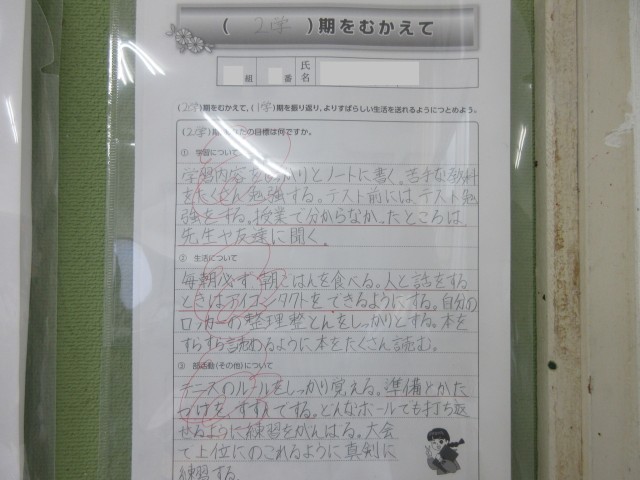 ( 2学 )期をむかえて
組 番 氏名
(2学)期をむかえて、(1学)期を振り返り、よりすばらしい生活を送れるようにつとめよう。
(2学)期 たの目標は何ですか。
① 学習について
学習内容をしっかりとノートに書く。苦手な教科
をたくさん勉強する。テスト前にはテスト勉
強をする。授業で分からなかったところは
先生や友達に聞く。
② 生活について
毎朝必ず朝ごはんを食べる。人と話をする
ときはアイコンタクトをできるようにする。自分の
ロッカーの整理整とんをしっかりとする。本を
すらすら読めるように本をたくさん読む。
③ 部活動(その他)について
テニスのルールをしっかり覚える。準備とかた
づけを、すすんでする。どんなボールでも打ち返
せるように練習をがんばる。大会
で上位にのこれるように真剣に
練習する。